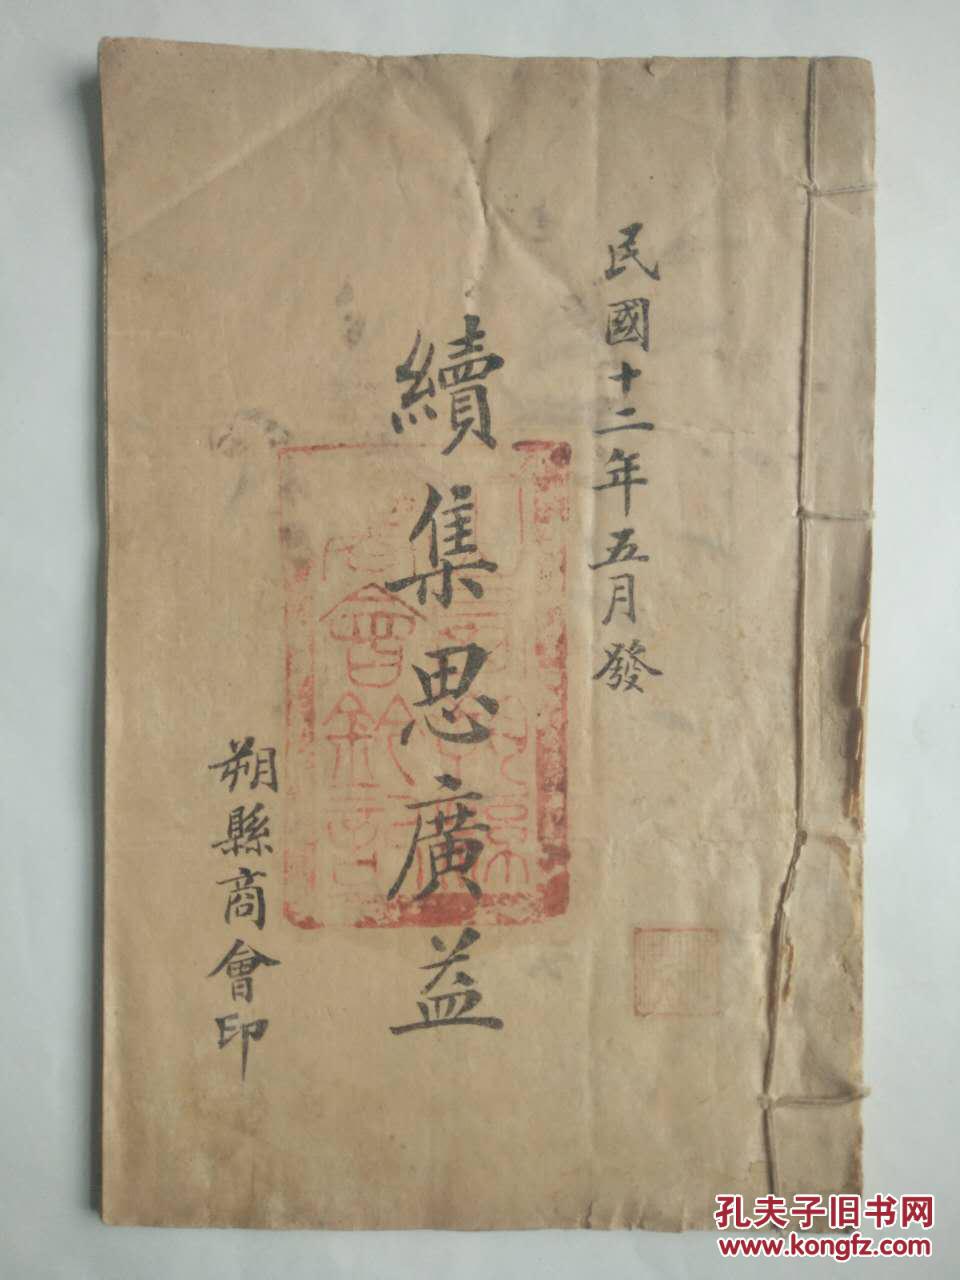 民國十二年五月發
續集思廣益
朔縣商會印
孔夫子旧书网
www.kongfz.com